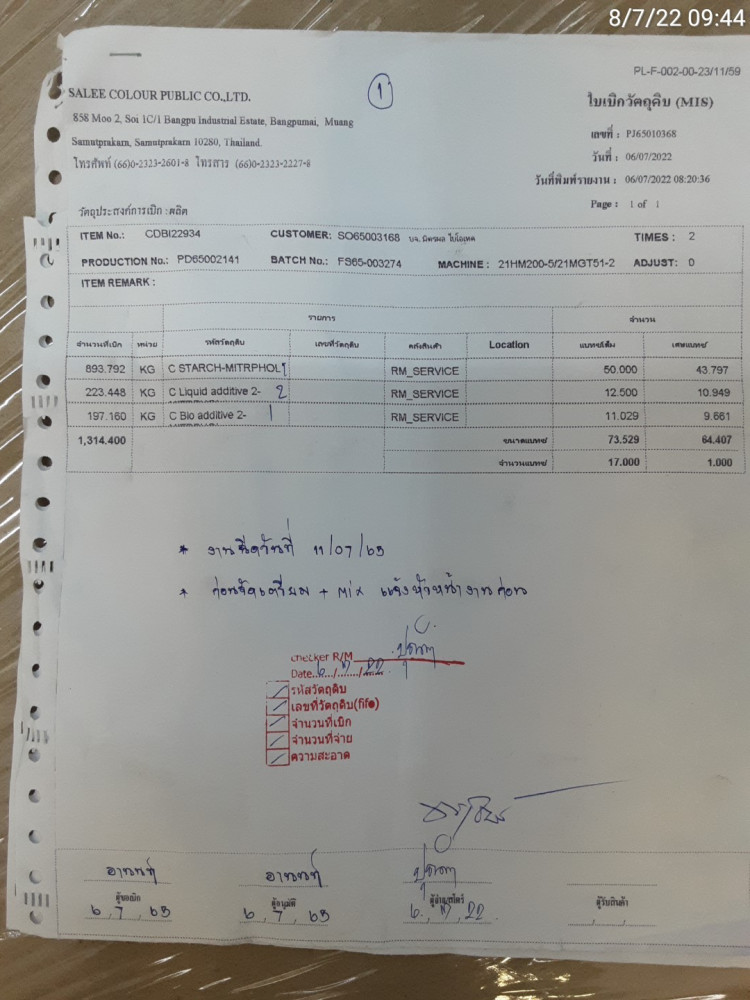 8/7/22 09:44
PL-F-002-00-23/11/59
SALEE COLOUR PUBLIC CO.,LTD.
1
ใบเบิกวัตถุดิบ (MIS)
858 Moo 2, Soi 1C/1 Bangpu Industrial Estate, Bangpumai, Muang
Samutprakarn, Samutprakarn 10280, Thailand.
โทรศัพท์ (66)0-2323-2601-8 โทรสาร (66)0-2323-2227-8
เลขที่ : PJ65010368
วันที่ : 06/07/2022
วันที่พิมพ์รายงาน : 06/07/2022 08:20:36
Page : 1 of 1
วัตถุประสงค์การเบิก : ผลิต
ITEM No.: CDBI22934 CUSTOMER: SO65003168 บจ. มิตรผล ไบโอฟูเอล TIMES : 2
PRODUCTION No.: PD65002141 BATCH No.: FS65-003274 MACHINE : 21HM200-5/21MGT51-2 ADJUST: 0
ITEM REMARK :
รายการ จำนวน
จำนวนที่เบิก หน่วย รหัสวัตถุดิบ เลขที่วัตถุดิบ คลังสินค้า Location แบทช์เต็ม เศษแบทช์
893.792 KG C STARCH-MITRPHOL 1 RM_SERVICE 50.000 43.797
223.448 KG C Liquid additive 2- 2 RM_SERVICE 12.500 10.949
197.160 KG C Bio additive 2- 1 RM_SERVICE 11.029 9.661
1,314.400 ขนาดแบทช์ 73.529 64.407
จำนวนแบทช์ 17.000 1.000
* งานฉีดวันที่ 11/07/65
* ก่อนจัดเตรียม + Mix แจ้งหัวหน้างานก่อน
checker R/M
Date 6/7/22
รหัสวัตถุดิบ
เลขที่วัตถุดิบ(fifo)
จำนวนที่เบิก
จำนวนที่จ่าย
ความสะอาด
อานนท์ อานนท์
ผู้ขอเบิก ผู้อนุมัติ ผู้รับสินค้า
6, 7, 65 6, 7, 65 6, 7, 22